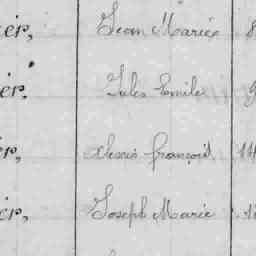 ier, Jean Marie 8
ier. Jules Emile 9
er, Alexis françois 14
ier, Joseph Marie